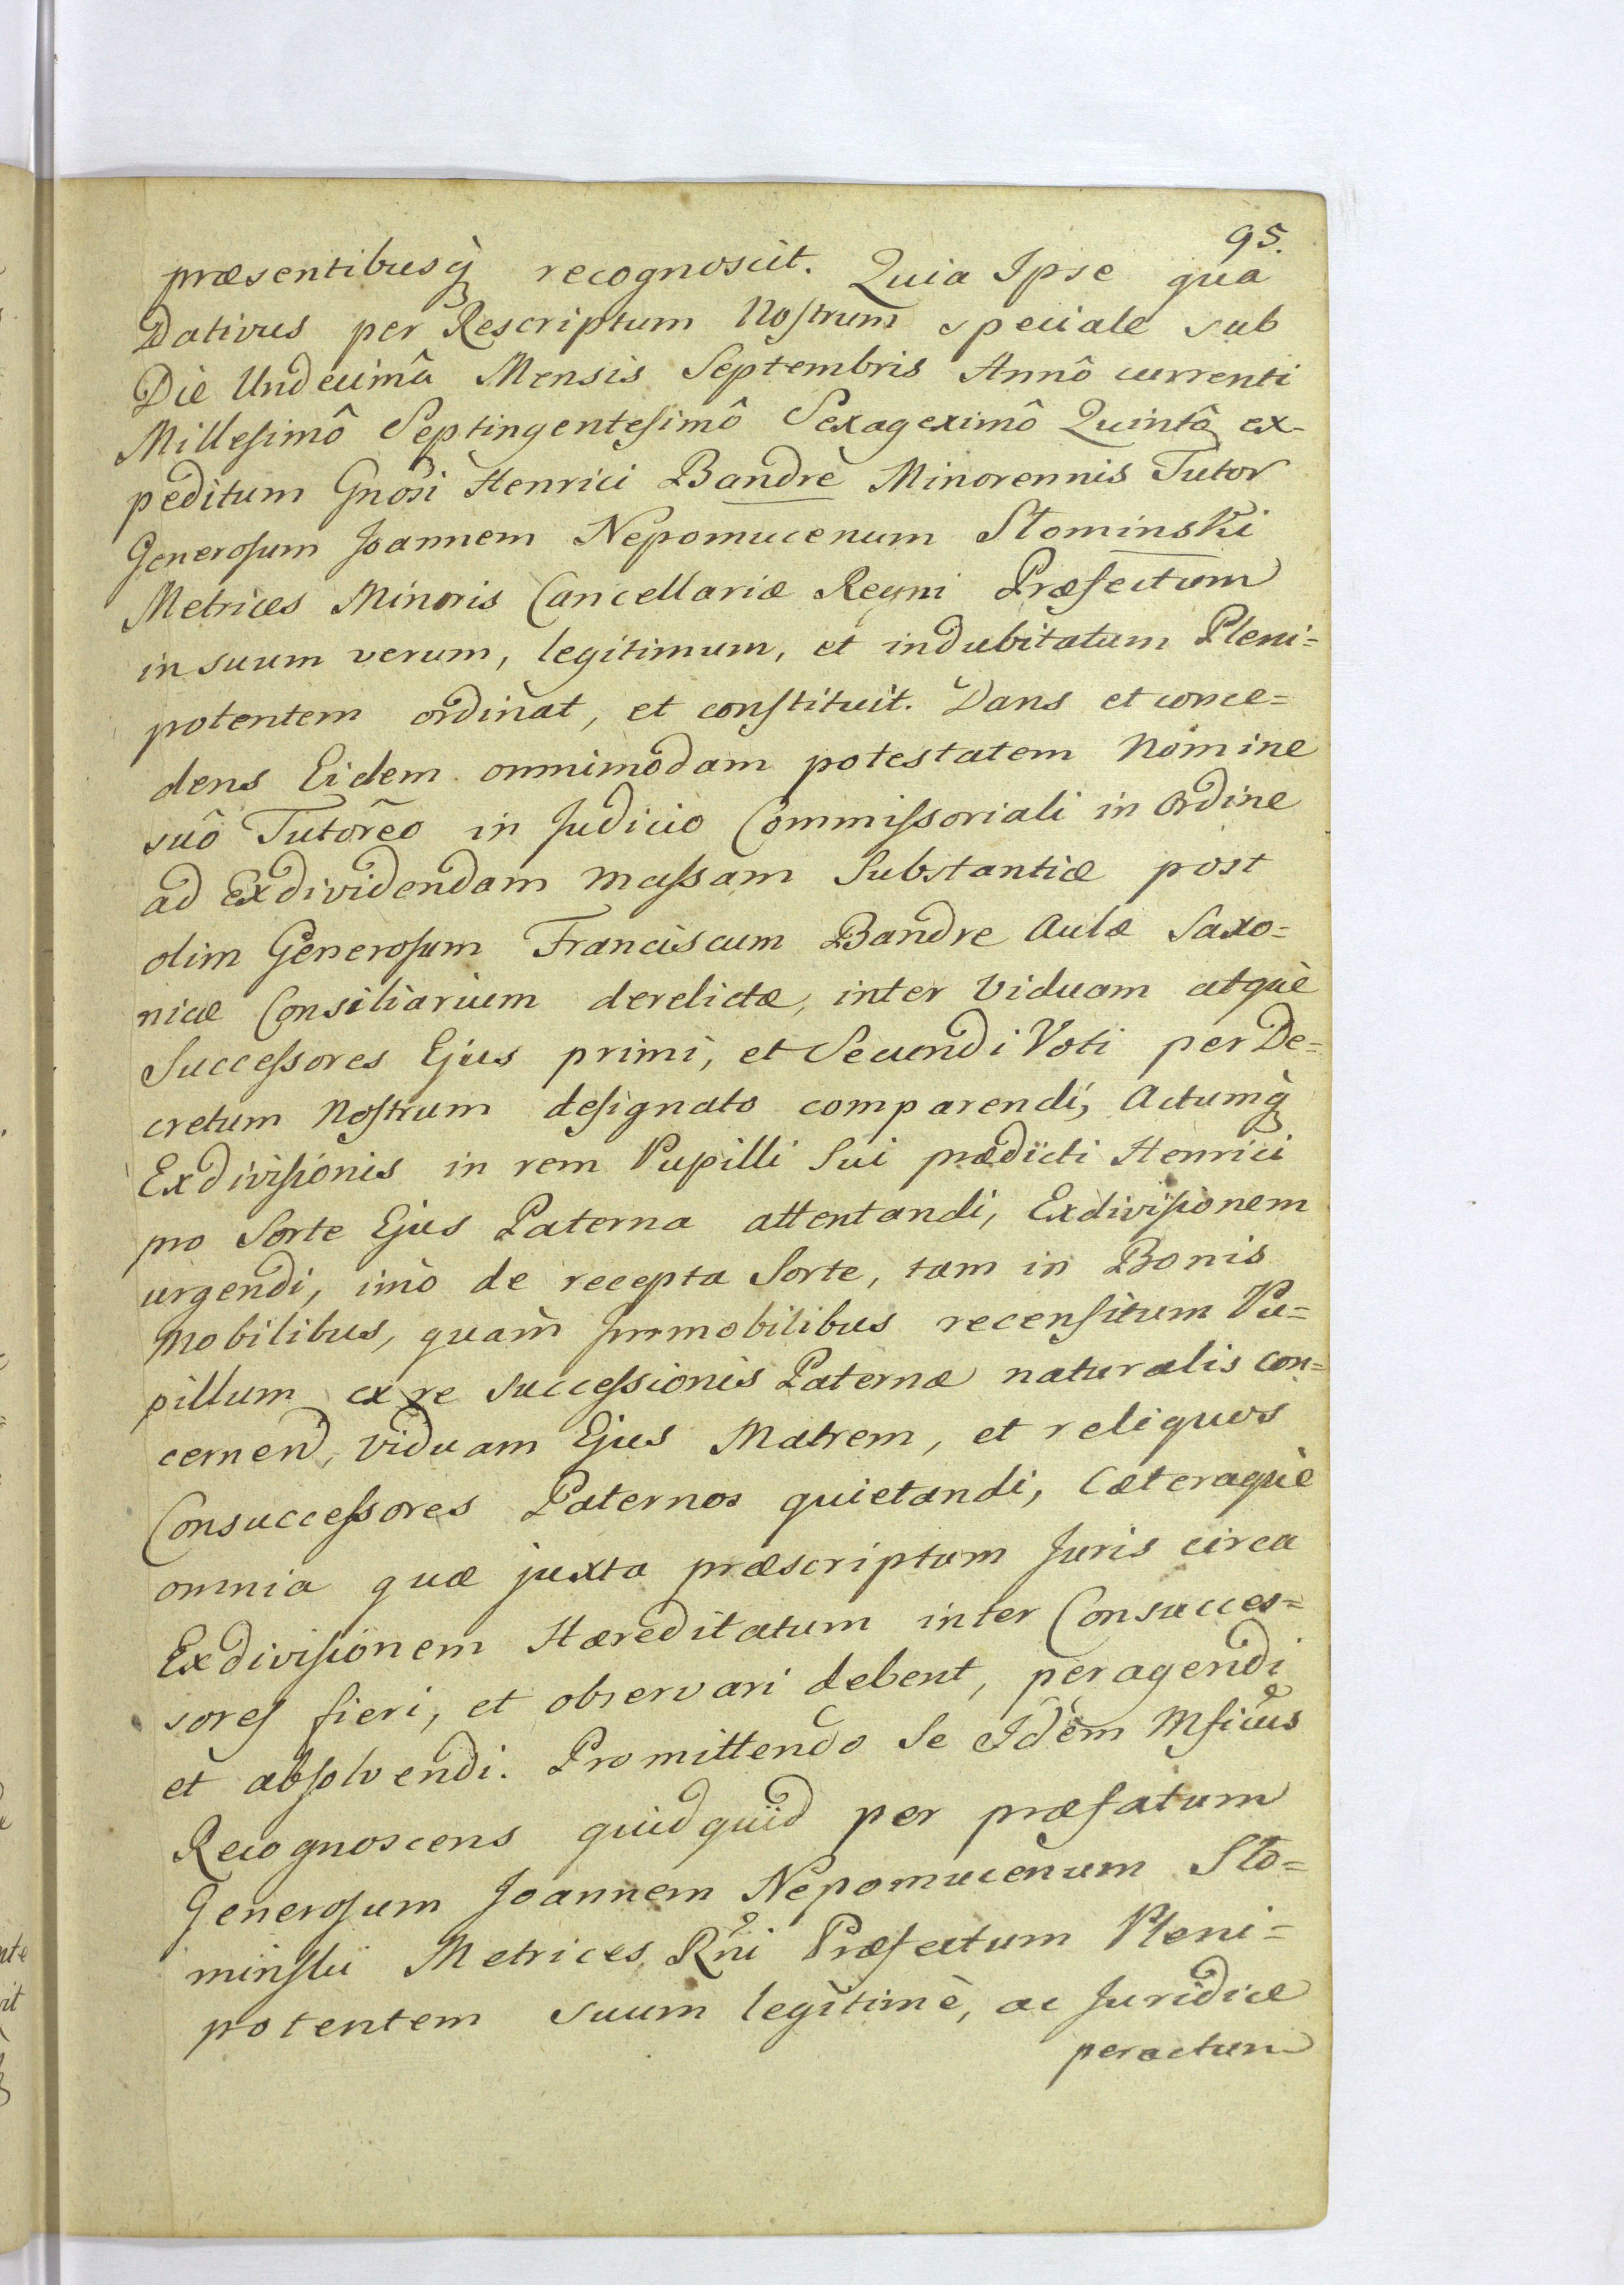 95.
præsentibusq̀ recognoscit. Quia Ipse qua
Dativus per Rescriptum Nostrum speciale sub
Die Undecimâ Mensis Septembris Annô currenti
Millesimô Septingentesimô Sexageximô Quintô ex-
peditum Gnosi Henrici Bandrè Minorennis Tutor
Generosum Joannem Nepomucenum Słominski
Metrices Minoris Cancellariæ Regni Præfectum
in suum verum, legitimum, et indubitatum Pleni=
potentem ordinat, et constituit. Dans et conce=
dens Eidem omnimodam potestatem Nomine
suô Tutoreo in Judicio Commissoriali in Ordine
ad Exdividendam massam Substantiæ post
olim Generosum Franciscum Bandre Aulæ Saxo=
nicæ Consiliarium derelictæ, inter Viduam atquè
Successores Ejus primi, et Secundi Voti per De=
cretum Nostrum designato comparendi, Actumq̀
Exdivisionis in rem Pupilli Sui prædicti Henrici
pro Sorte Ejus Paterna attentandi, Exdivisionem
urgendi, imò de recepta Sorte, tam in Bonis
Mobilibus, quam Immobilibus recensitum Pu=
pillum ex re successionis Paternæ naturalis con=
cernen, Viduam Ejus Matrem, et reliquos
Consuccessores Paternos quietandi, Cæteraquè
omnia quæ juxta præscriptum Juris circa
Exdivisionem Hæreditatum inter Consucces=
sores fieri, et observari debent, peragendi
et absolvendi. Promittendo Se Idem Msicus
Recognoscens quidquid per præfatum
Generosum Joannem Nepomucenum Sło=
minski Metrices Rni Præfectum Pleni=
potentem suum legitimè, ac Juridicè
peractum